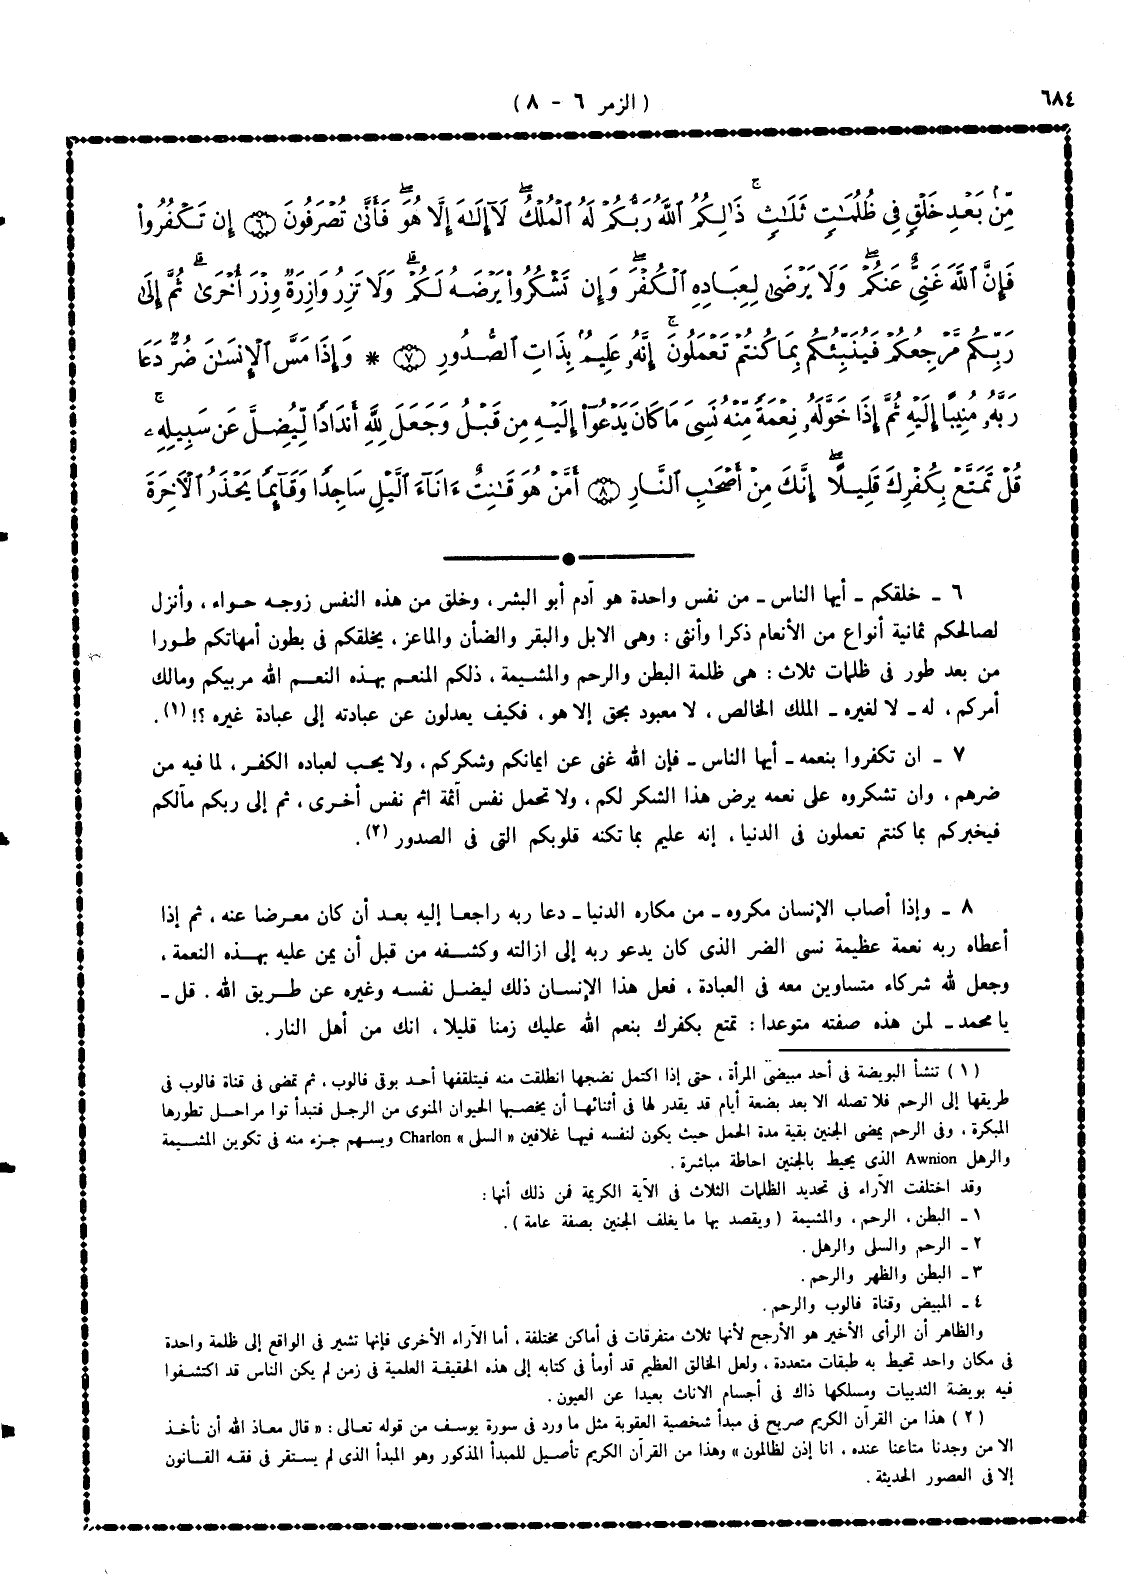 ٦٨٤
( الزمر ٦ - ٨ )
مِّنۢ بَعْدِ خَلْقٍ فِى ظُلُمَٰتٍ ثَلَٰثٍ ۚ ذَٰلِكُمُ ٱللَّهُ رَبُّكُمْ لَهُ ٱلْمُلْكُ ۖ لَآ إِلَٰهَ إِلَّا هُوَ ۖ فَأَنَّىٰ تُصْرَفُونَ ﴿٦﴾ إِن تَكْفُرُوا۟
فَإِنَّ ٱللَّهَ غَنِىٌّ عَنكُمْ ۖ وَلَا يَرْضَىٰ لِعِبَادِهِ ٱلْكُفْرَ ۖ وَإِن تَشْكُرُوا۟ يَرْضَهُ لَكُمْ ۗ وَلَا تَزِرُ وَازِرَةٌ وِزْرَ أُخْرَىٰ ۗ ثُمَّ إِلَىٰ
رَبِّكُم مَّرْجِعُكُمْ فَيُنَبِّئُكُم بِمَا كُنتُمْ تَعْمَلُونَ ۚ إِنَّهُۥ عَلِيمٌۢ بِذَاتِ ٱلصُّدُورِ ﴿٧﴾ * وَإِذَا مَسَّ ٱلْإِنسَٰنَ ضُرٌّ دَعَا
رَبَّهُۥ مُنِيبًا إِلَيْهِ ثُمَّ إِذَا خَوَّلَهُۥ نِعْمَةً مِّنْهُ نَسِىَ مَا كَانَ يَدْعُوٓا۟ إِلَيْهِ مِن قَبْلُ وَجَعَلَ لِلَّهِ أَندَادًا لِّيُضِلَّ عَن سَبِيلِهِۦ ۚ
قُلْ تَمَتَّعْ بِكُفْرِكَ قَلِيلًا ۖ إِنَّكَ مِنْ أَصْحَٰبِ ٱلنَّارِ ﴿٨﴾ أَمَّنْ هُوَ قَٰنِتٌ ءَانَآءَ ٱلَّيْلِ سَاجِدًا وَقَآئِمًا يَحْذَرُ ٱلْءَاخِرَةَ
٦ ـ خلقكم ـ أيها الناس ـ من نفس واحدة هو آدم أبو البشر ، وخلق من هذه النفس زوجه حواء ، وأنزل
لصالحكم ثمانية أنواع من الأنعام ذكرا وأنثى : وهى الابل والبقر والضأن والماعز ، يخلقكم فى بطون أمهاتكم طورا
من بعد طور فى ظلمات ثلاث : هى ظلمة البطن والرحم والمشيمة ، ذلكم المنعم بهذه النعم الله مربيكم ومالك
أمركم ، له ـ لا لغيره ـ الملك الخالص ، لا معبود بحق إلا هو ، فكيف يعدلون عن عبادته إلى عبادة غيره ؟! (١) .
٧ ـ ان تكفروا بنعمه ـ أيها الناس ـ فإن الله غنى عن ايمانكم وشكركم ، ولا يحب لعباده الكفر ، لما فيه من
ضرهم ، وان تشكروه على نعمه يرض هذا الشكر لكم ، ولا تحمل نفس آثمة اثم نفس أخرى ، ثم إلى ربكم مآلكم
فيخبركم بما كنتم تعملون فى الدنيا ، إنه عليم بما تكنه قلوبكم التى فى الصدور (٢) .
٨ ـ وإذا أصاب الإنسان مكروه ـ من مكاره الدنيا ـ دعا ربه راجعا إليه بعد أن كان معرضا عنه ، ثم إذا
أعطاه ربه نعمة عظيمة نسى الضر الذى كان يدعو ربه إلى ازالته وكشفه من قبل أن يمن عليه بهذه النعمة ،
وجعل لله شركاء متساوين معه فى العبادة ، فعل هذا الإنسان ذلك ليضل نفسه وغيره عن طريق الله . قل ـ
يا محمد ـ لمن هذه صفته متوعدا : تمتع بكفرك بنعم الله عليك زمنا قليلا ، انك من أهل النار .
(١) تنشأ البويضة فى أحد مبيضى المرأة ، حتى إذا اكتمل نضجها انطلقت منه فيتلقفها أحد بوقى فالوب ، ثم تمضى فى قناة فالوب فى
طريقها إلى الرحم فلا تصله الا بعد بضعة أيام قد يقدر لها فى أثنائها أن يخصبها الحيوان المنوى من الرجل فتبدأ توا مراحل تطورها
المبكرة ، وفى الرحم يمضى الجنين بقية مدة الحمل حيث يكون لنفسه فيها غلافين « السلى » Charlon ويسهم جزء منه فى تكوين المشيمة
والرهل Awnion الذى يحيط بالجنين احاطة مباشرة .
وقد اختلفت الآراء فى تحديد الظلمات الثلاث فى الآية الكريمة فمن ذلك أنها :
١ ـ البطن ، الرحم ، والمشيمة ( ويقصد بها ما يغلف الجنين بصفة عامة ) .
٢ ـ الرحم والسلى والرهل .
٣ ـ البطن والظهر والرحم .
٤ ـ المبيض وقناة فالوب والرحم .
والظاهر أن الرأى الأخير هو الأرجح لأنها ثلاث متفرقات فى أماكن مختلفة ، أما الآراء الأخرى فإنها تشير فى الواقع إلى ظلمة واحدة
فى مكان واحد تحيط به طبقات متعددة ، ولعل الخالق العظيم قد أومأ فى كتابه إلى هذه الحقيقة العلمية فى زمن لم يكن الناس قد اكتشفوا
فيه بويضة الثدييات ومسلكها ذاك فى أجسام الاناث بعيدا عن العيون .
(٢) هذا من القرآن الكريم صريح فى مبدأ شخصية العقوبة مثل ما ورد فى سورة يوسف من قوله تعالى : « قال معاذ الله أن نأخذ
الا من وجدنا متاعنا عنده ، انا إذن لظالمون » وهذا من القرآن الكريم تأصيل للمبدأ المذكور وهو المبدأ الذى لم يستقر فى فقه القانون
إلا فى العصور الحديثة .